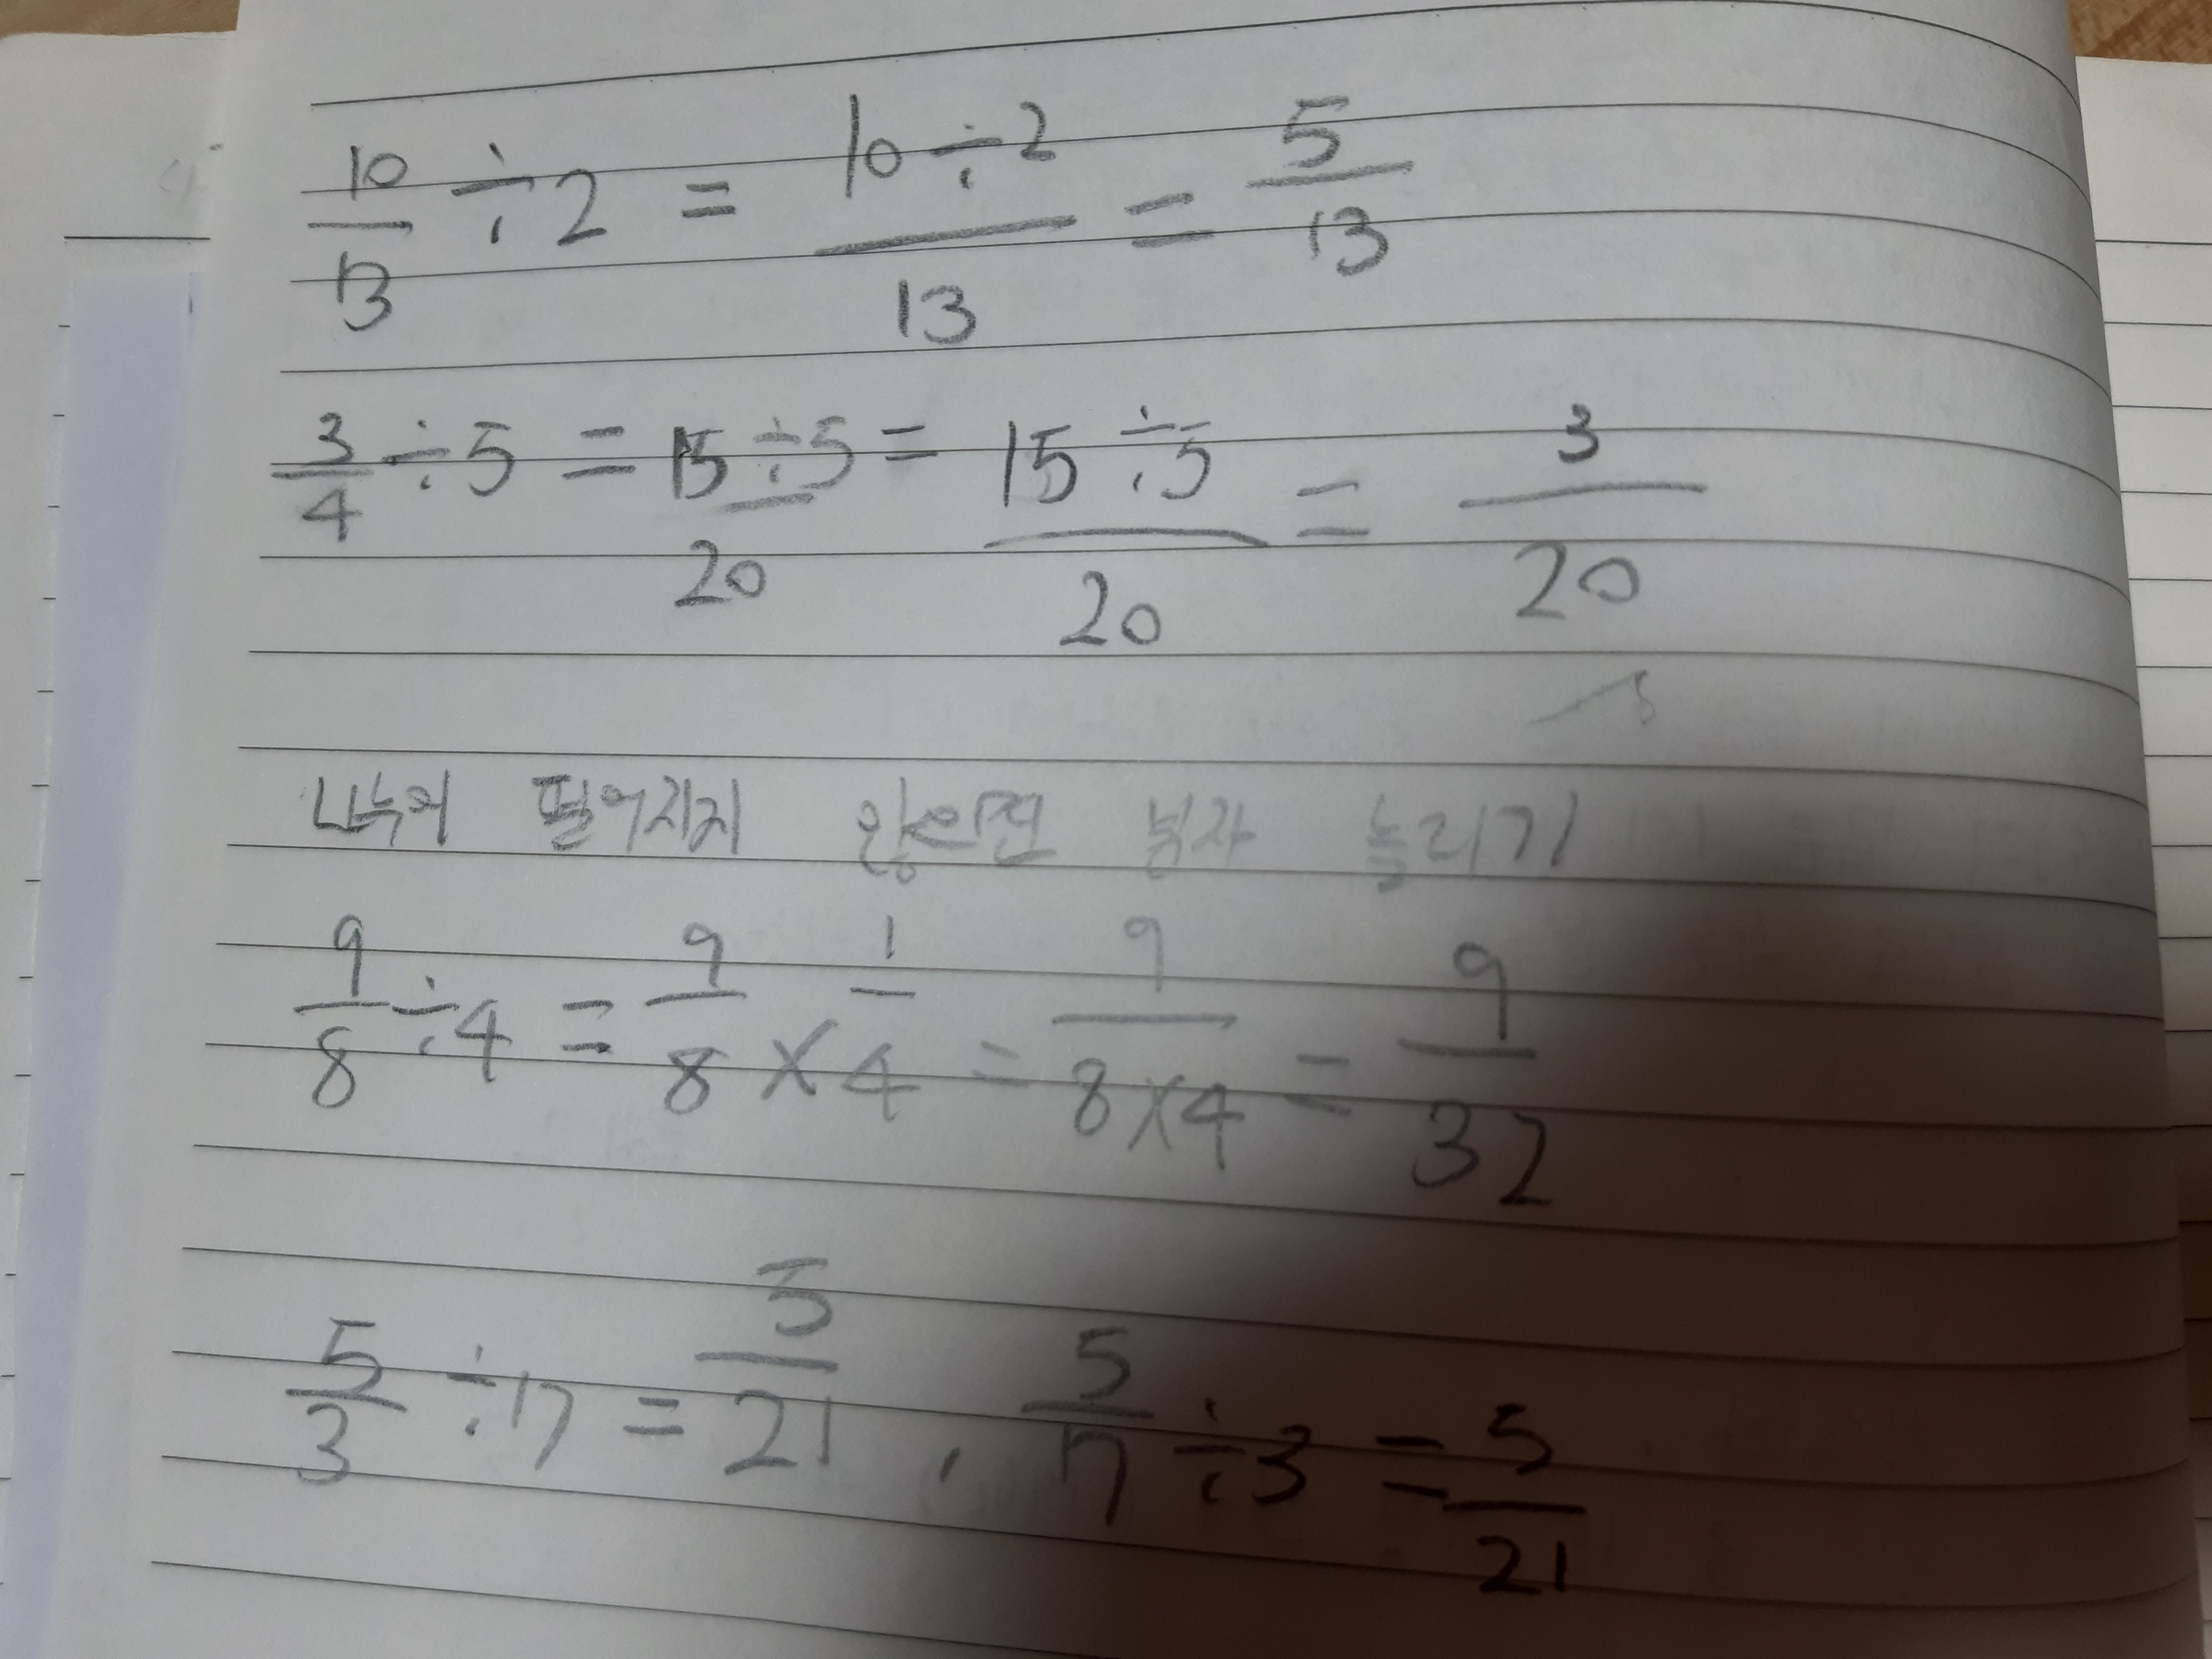 10/13 ÷ 2 = 10÷2/13 = 5/13
3/4 ÷ 5 = 15/20 ÷ 5 = 15÷5/20 = 3/20
나누어 떨어지지 않으면 분자 늘리기
9/8 ÷ 4 = 9/8 × 1/4 = 9/8×4 = 9/32
5/3 ÷ 7 = 5/21 , 5/7 ÷ 3 = 5/21